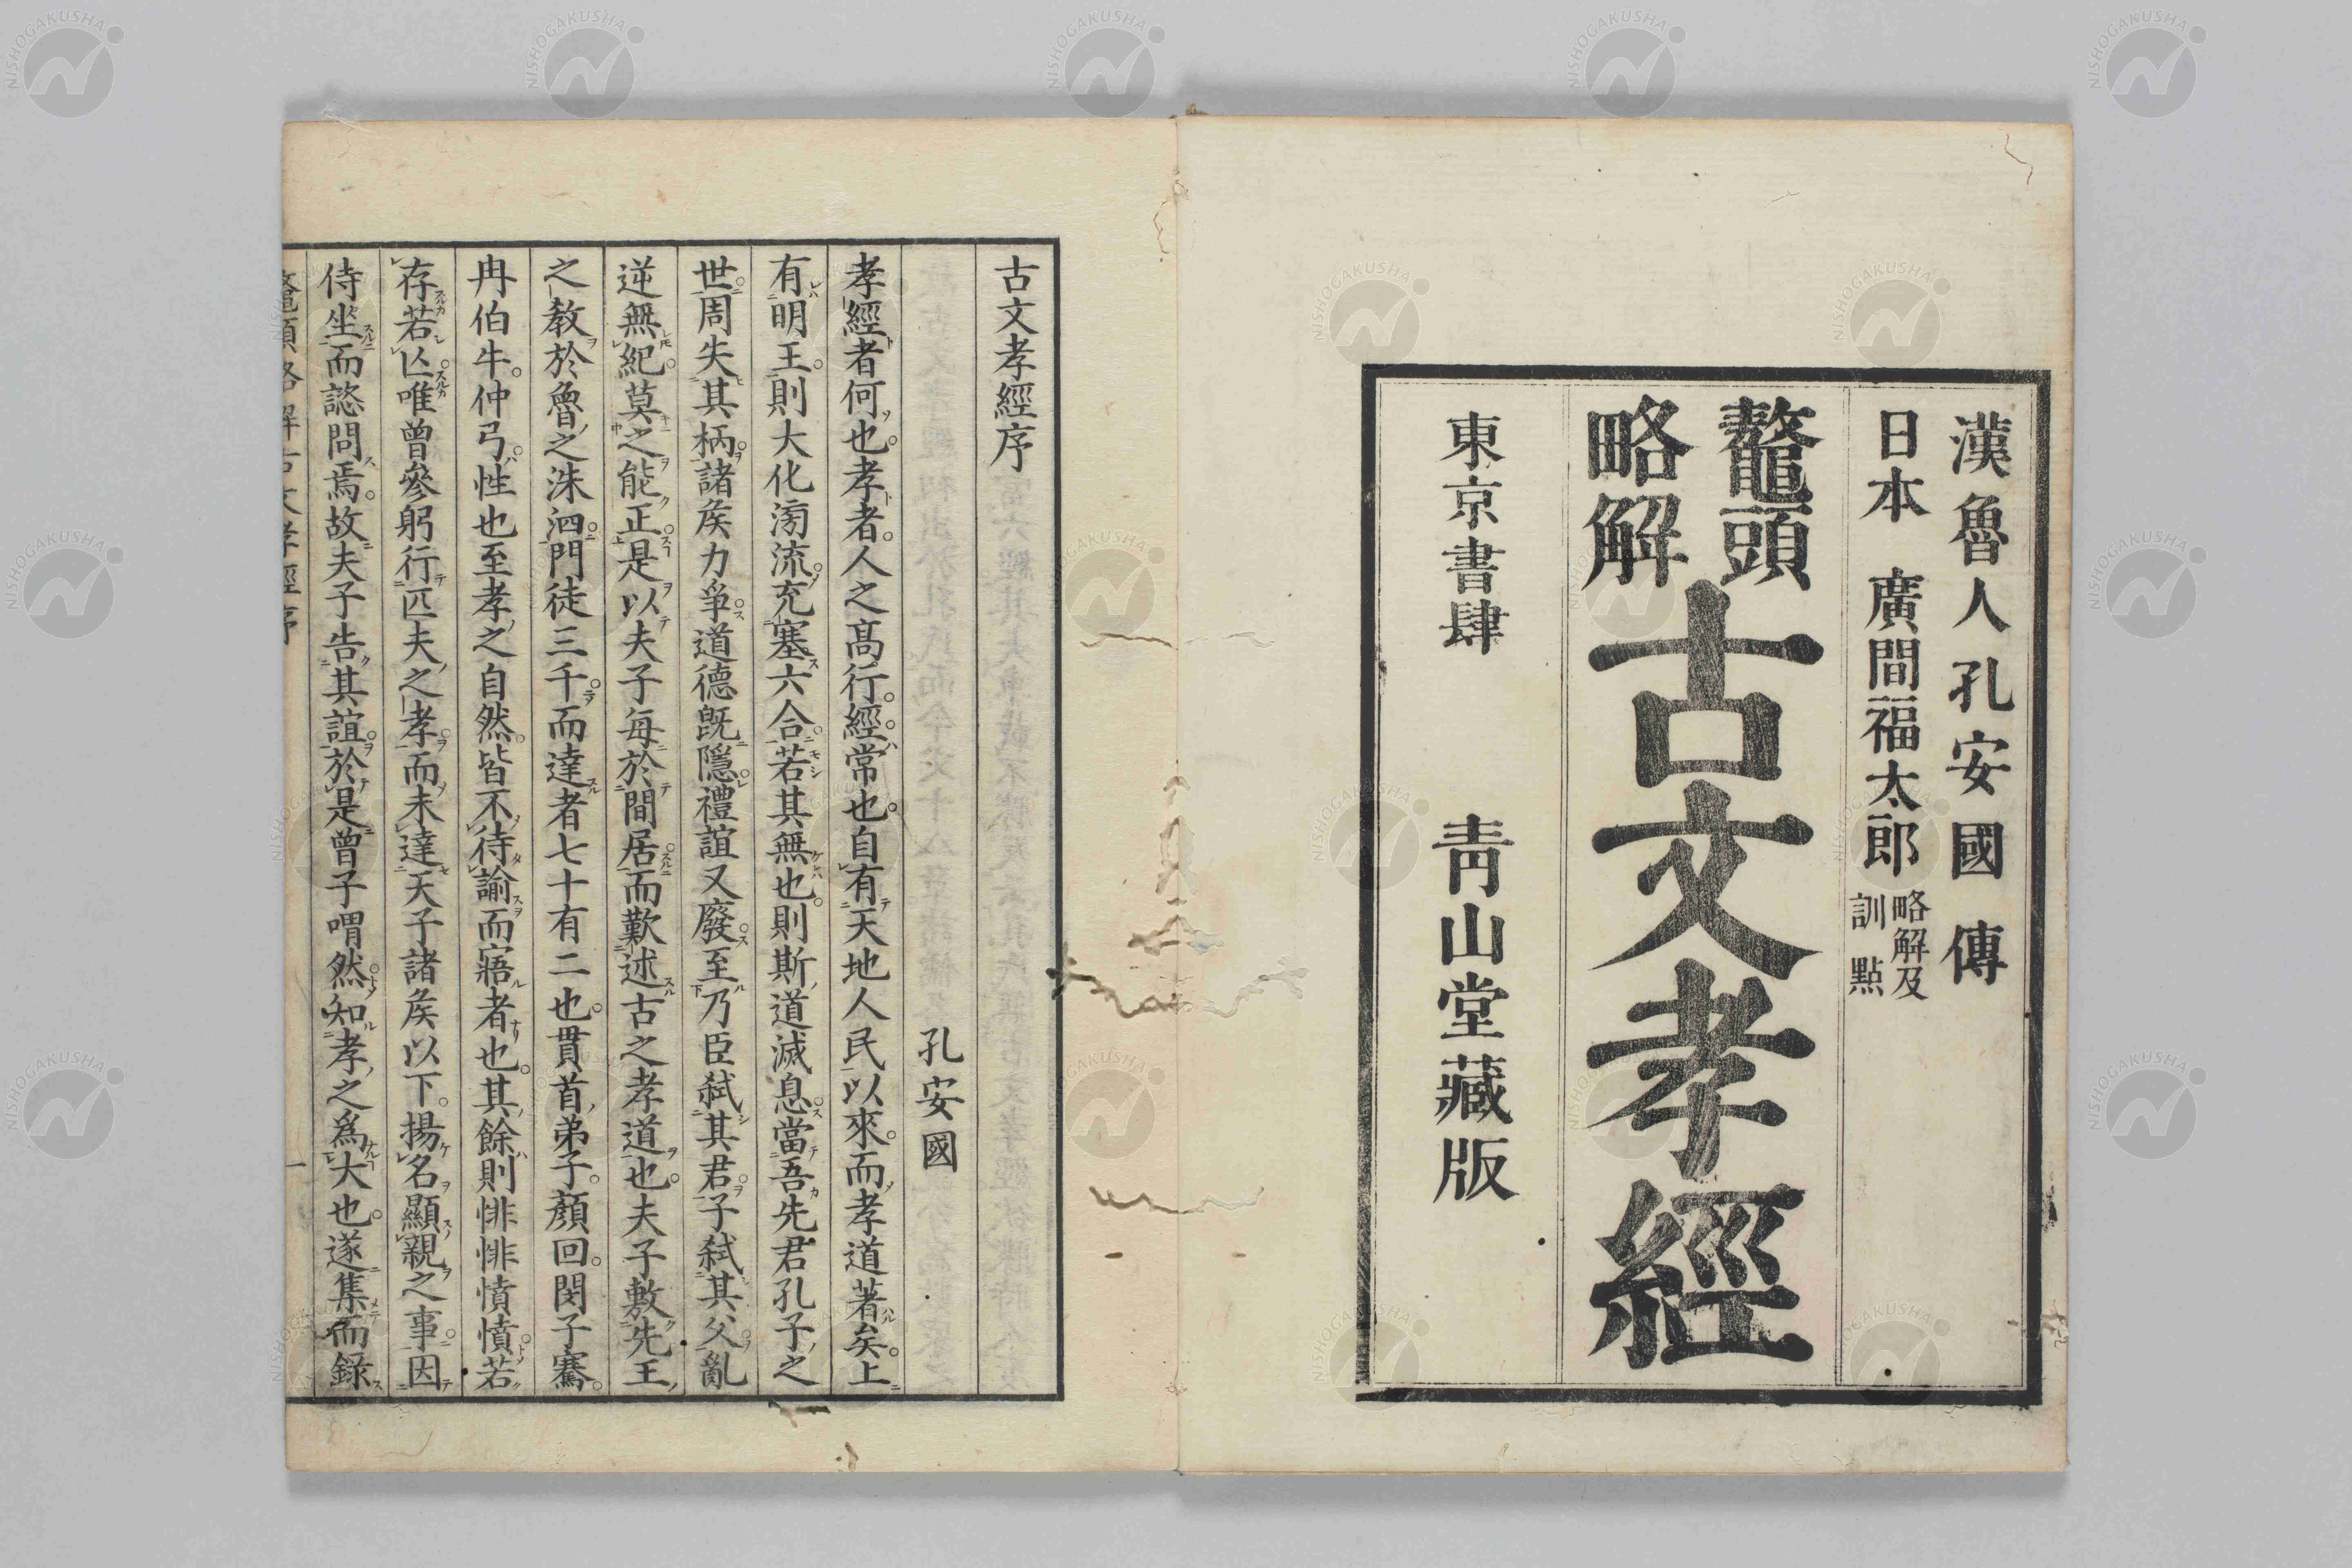 漢魯人孔安國傳
日本 廣間福太郎 略解及訓點
鼇頭略解古文孝經
東京書肆 靑山堂藏版
古文孝經序
孔安國
孝經者何也孝者人之高行經常也自有天地人民以來而孝道著矣上
有明王則大化滂流充塞六合若其無也則斯道滅息當吾先君孔子之
世周失其柄諸矦力爭道德旣隱禮誼又廢至乃臣弑其君子弑其父亂
逆無紀莫之能正是以夫子每於間居而歎述古之孝道也夫子敷先王
之敎於魯之洙泗門徒三千而達者七十有二也貫首弟子顏回閔子騫
冉伯牛仲弓性也至孝之自然皆不待諭而寤者也其餘則悱悱憤憤若
存若亾唯曾參躬行匹夫之孝而未達天子諸矦以下揚名顯親之事因
侍坐而諮問焉故夫子告其誼於是曾子喟然知孝之爲大也遂集而錄
鼇頭略解古文孝經序 一
NISHOGAKUSHA